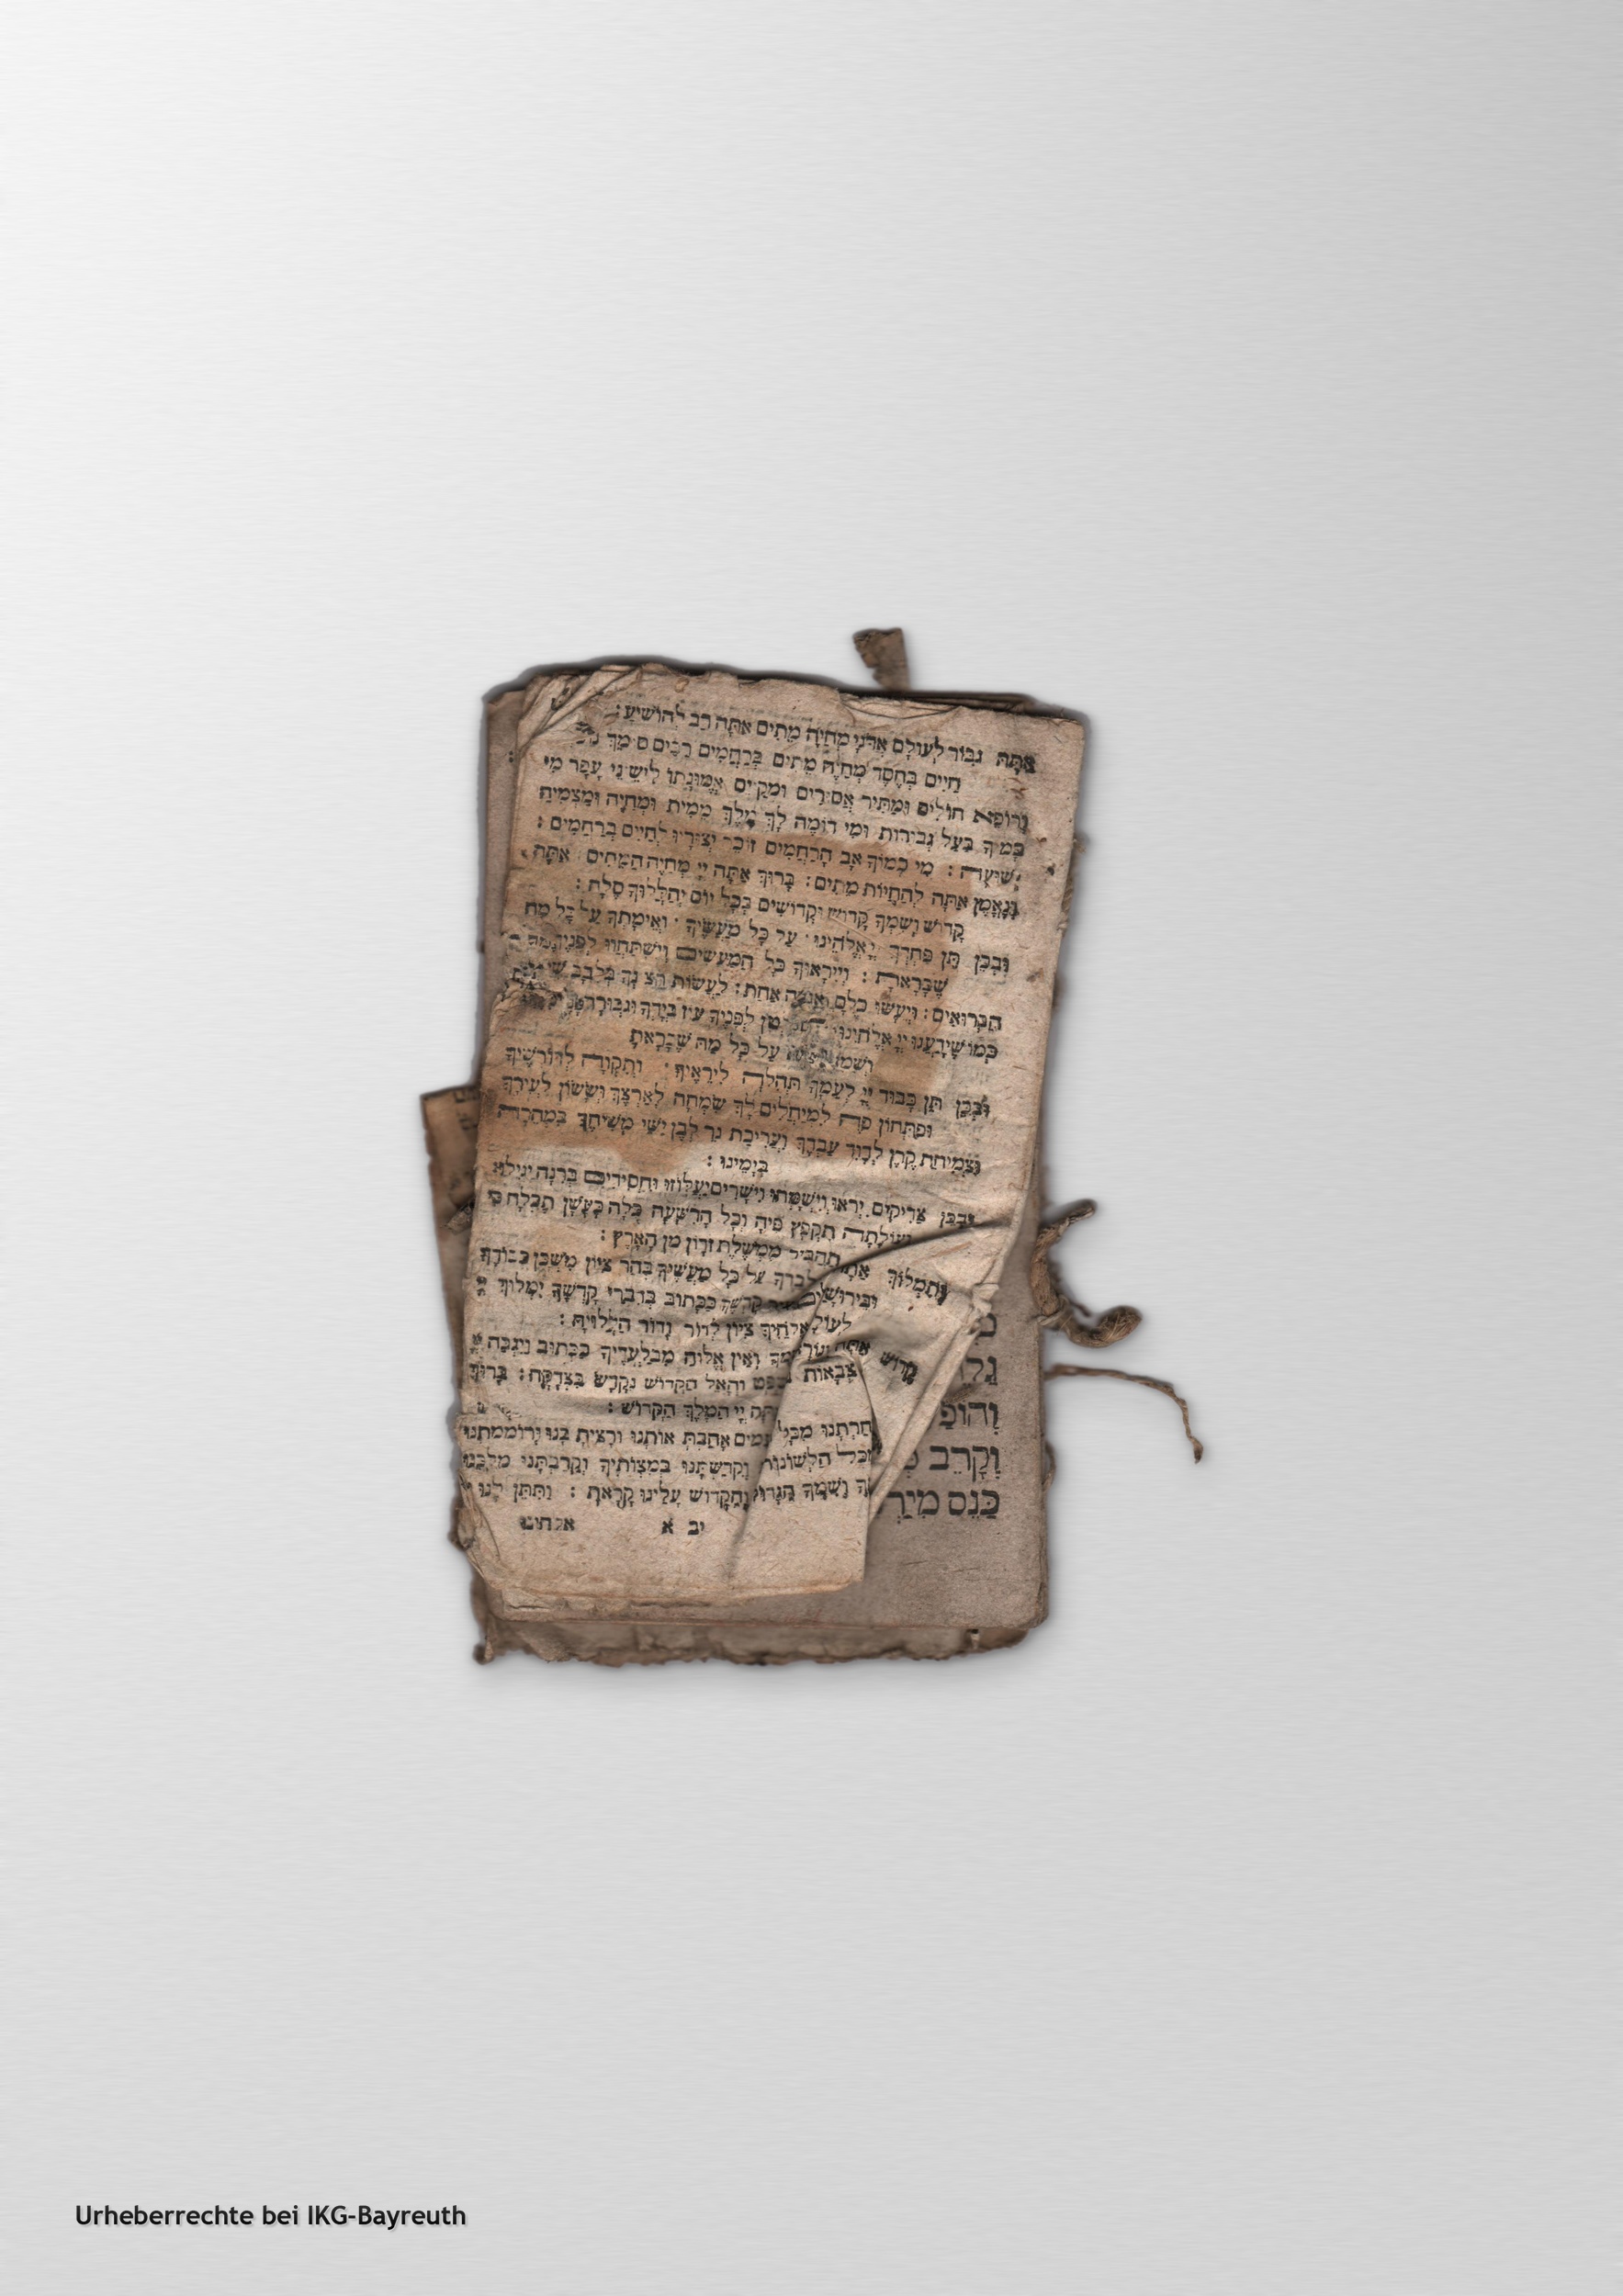 אַתָּה גִבּוֹר לְעוֹלָם אֲדֹנָי מְחַיֶּה מֵתִים אַתָּה רַב לְהוֹשִׁיעַ :
חַיִּים בְּחֶסֶד מְחַיֵּה מֵתִים בְּרַחֲמִים רַבִּים סוֹמֵךְ
וְרוֹפֵא חוֹלִים וּמַתִּיר אֲסוּרִים וּמְקַיֵּים אֱמוּנָתוֹ לִישֵׁנֵי עָפָר מִי
כָמוֹךָ בַּעַל גְּבוּרוֹת וּמִי דוֹמֶה לָךְ מֶלֶךְ מֵמִית וּמְחַיֶּה וּמַצְמִיחַ
יְשׁוּעָה : מִי כָמוֹךָ אַב הָרַחֲמִים זוֹכֵר יְצוּרָיו לְחַיִּים בְּרַחֲמִים :
וְנֶאֱמָן אַתָּה לְהַחֲיוֹת מֵתִים : בָּרוּךְ אַתָּה יְיָ מְחַיֵּה הַמֵּתִים אַתָּה
קָדוֹשׁ וְשִׁמְךָ קָדוֹשׁ וּקְדוֹשִׁים בְּכָל יוֹם יְהַלְלוּךָ סֶלָה :
וּבְכֵן תֵּן פַּחְדְּךָ יְיָ אֱלֹהֵינוּ עַל כָּל מַעֲשֶׂיךָ וְאֵימָתְךָ עַל כָּל מַה
שֶּׁבָּרָאתָ : וְיִירָאוּךָ כָּל הַמַּעֲשִׂים וְיִשְׁתַּחֲווּ לְפָנֶיךָ כָּל
הַבְּרוּאִים : וְיֵעָשׂוּ כֻלָּם אֲגֻדָּה אַחַת : לַעֲשׂוֹת רְצוֹנְךָ בְּלֵבָב שָׁלֵם
כְּמוֹ שֶׁיָּדַעְנוּ יְיָ אֱלֹהֵינוּ לְפָנֶיךָ עֹז בְּיָדְךָ וּגְבוּרָה
עַל כָּל מַה שֶּׁבָּרָאתָ
וּבְכֵן תֵּן כָּבוֹד יְיָ לְעַמֶּךָ תְּהִלָּה לִירֵאֶיךָ וְתִקְוָה לְדוֹרְשֶׁיךָ
וּפִתְחוֹן פֶּה לַמְיַחֲלִים לָךְ שִׂמְחָה לְאַרְצֶךָ וְשָׂשׂוֹן לְעִירֶךָ
וּצְמִיחַת קֶרֶן לְדָוִד עַבְדֶּךָ וַעֲרִיכַת נֵר לְבֶן יִשַׁי מְשִׁיחֶךָ בִּמְהֵרָה
בְיָמֵינוּ :
וּבְכֵן צַדִּיקִים יִרְאוּ וְיִשְׂמָחוּ וִישָׁרִים יַעֲלוֹזוּ וַחֲסִידִים בְּרִנָּה יָגִילוּ
וְעוֹלָתָה תִּקְפֹּץ פִּיהָ וְכָל הָרִשְׁעָה כֻּלָּהּ כְּעָשָׁן תִּכְלֶה כִּי
תַעֲבִיר מֶמְשֶׁלֶת זָדוֹן מִן הָאָרֶץ :
וְתִמְלוֹךְ אַתָּה לְבַדֶּךָ עַל כָּל מַעֲשֶׂיךָ בְּהַר צִיּוֹן מִשְׁכַּן כְּבוֹדֶךָ
וּבִירוּשָׁלַיִם עִיר קָדְשֶׁךָ כַּכָּתוּב בְּדִבְרֵי קָדְשֶׁךָ יִמְלוֹךְ יְיָ
לְעוֹלָם אֱלֹהַיִךְ צִיּוֹן לְדוֹר וָדוֹר הַלְלוּיָהּ :
קָדוֹשׁ אַתָּה וְנוֹרָא שְׁמֶךָ וְאֵין אֱלוֹהַּ מִבַּלְעָדֶיךָ כַּכָּתוּב וַיִּגְבַּהּ יְיָ
צְבָאוֹת בַּמִּשְׁפָּט וְהָאֵל הַקָּדוֹשׁ נִקְדָּשׁ בִּצְדָקָה : בָּרוּךְ
אַתָּה יְיָ הַמֶּלֶךְ הַקָּדוֹשׁ :
בְחַרְתָּנוּ מִכָּל הָעַמִּים אָהַבְתָּ אוֹתָנוּ וְרָצִיתָ בָּנוּ וְרוֹמַמְתָּנוּ
מִכָּל הַלְּשׁוֹנוֹת וְקִדַּשְׁתָּנוּ בְּמִצְוֹתֶיךָ וְקֵרַבְתָּנוּ מַלְכֵּנוּ
וְשִׁמְךָ הַגָּדוֹל וְהַקָּדוֹשׁ עָלֵינוּ קָרָאתָ : וַתִּתֶּן לָנוּ יְיָ
יב א אלהינו
וְהוֹפַ
וְקָרֵב
כַּנֵּס מִיַּרְ
Urheberrechte bei IKG-Bayreuth